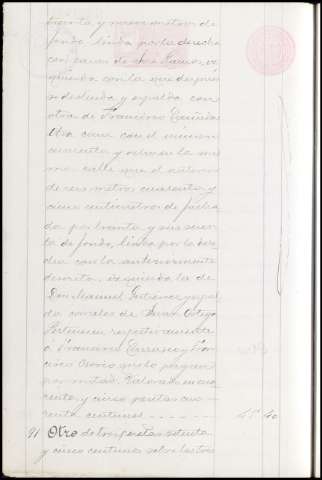 treinta y nueve metros de
fondo, linda por la derecha
con casa de José Ramos, iz
quierda con la que después
se deslinda y espalda con
otra de Francisco
Otra casa con el número
cuarenta y ocho en la mis
ma calle que el anterior
de seis metros cuarenta y
cinco centímetros de facha
da por treinta y nueve
de fondo, linda por la dere
cha con la anteriormente
descrita, izquierda la de
Don Manuel Gutierrez y espal
da corrales de Juan Ortega
Pertenecen respectivamente
á Francisco Carrasco y Fran
cisco Osorio
por mitad. Valorado en cua
renta y cinco pesetas cua
renta centimos - - - - - - 45 40
91 Otro de tres pesetas setenta
y cinco centimos sobre las tres